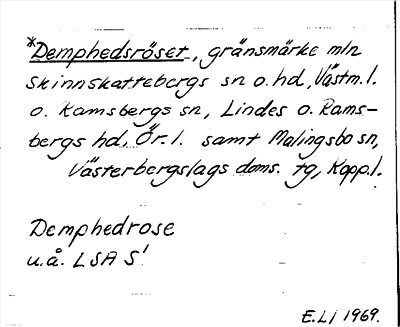 *Demphedsröset, gränsmärke mln
Skinnskattebergs sn o. hd, Västm. l.
o. Ramsbergs sn, Lindes o. Rams-
bergs hd, Ör. l. samt Malingsbo sn,
Västerbergslags doms. tg, Kopp. l.
Demphedrose
u.å. LSA S1
E.Lj 1969.